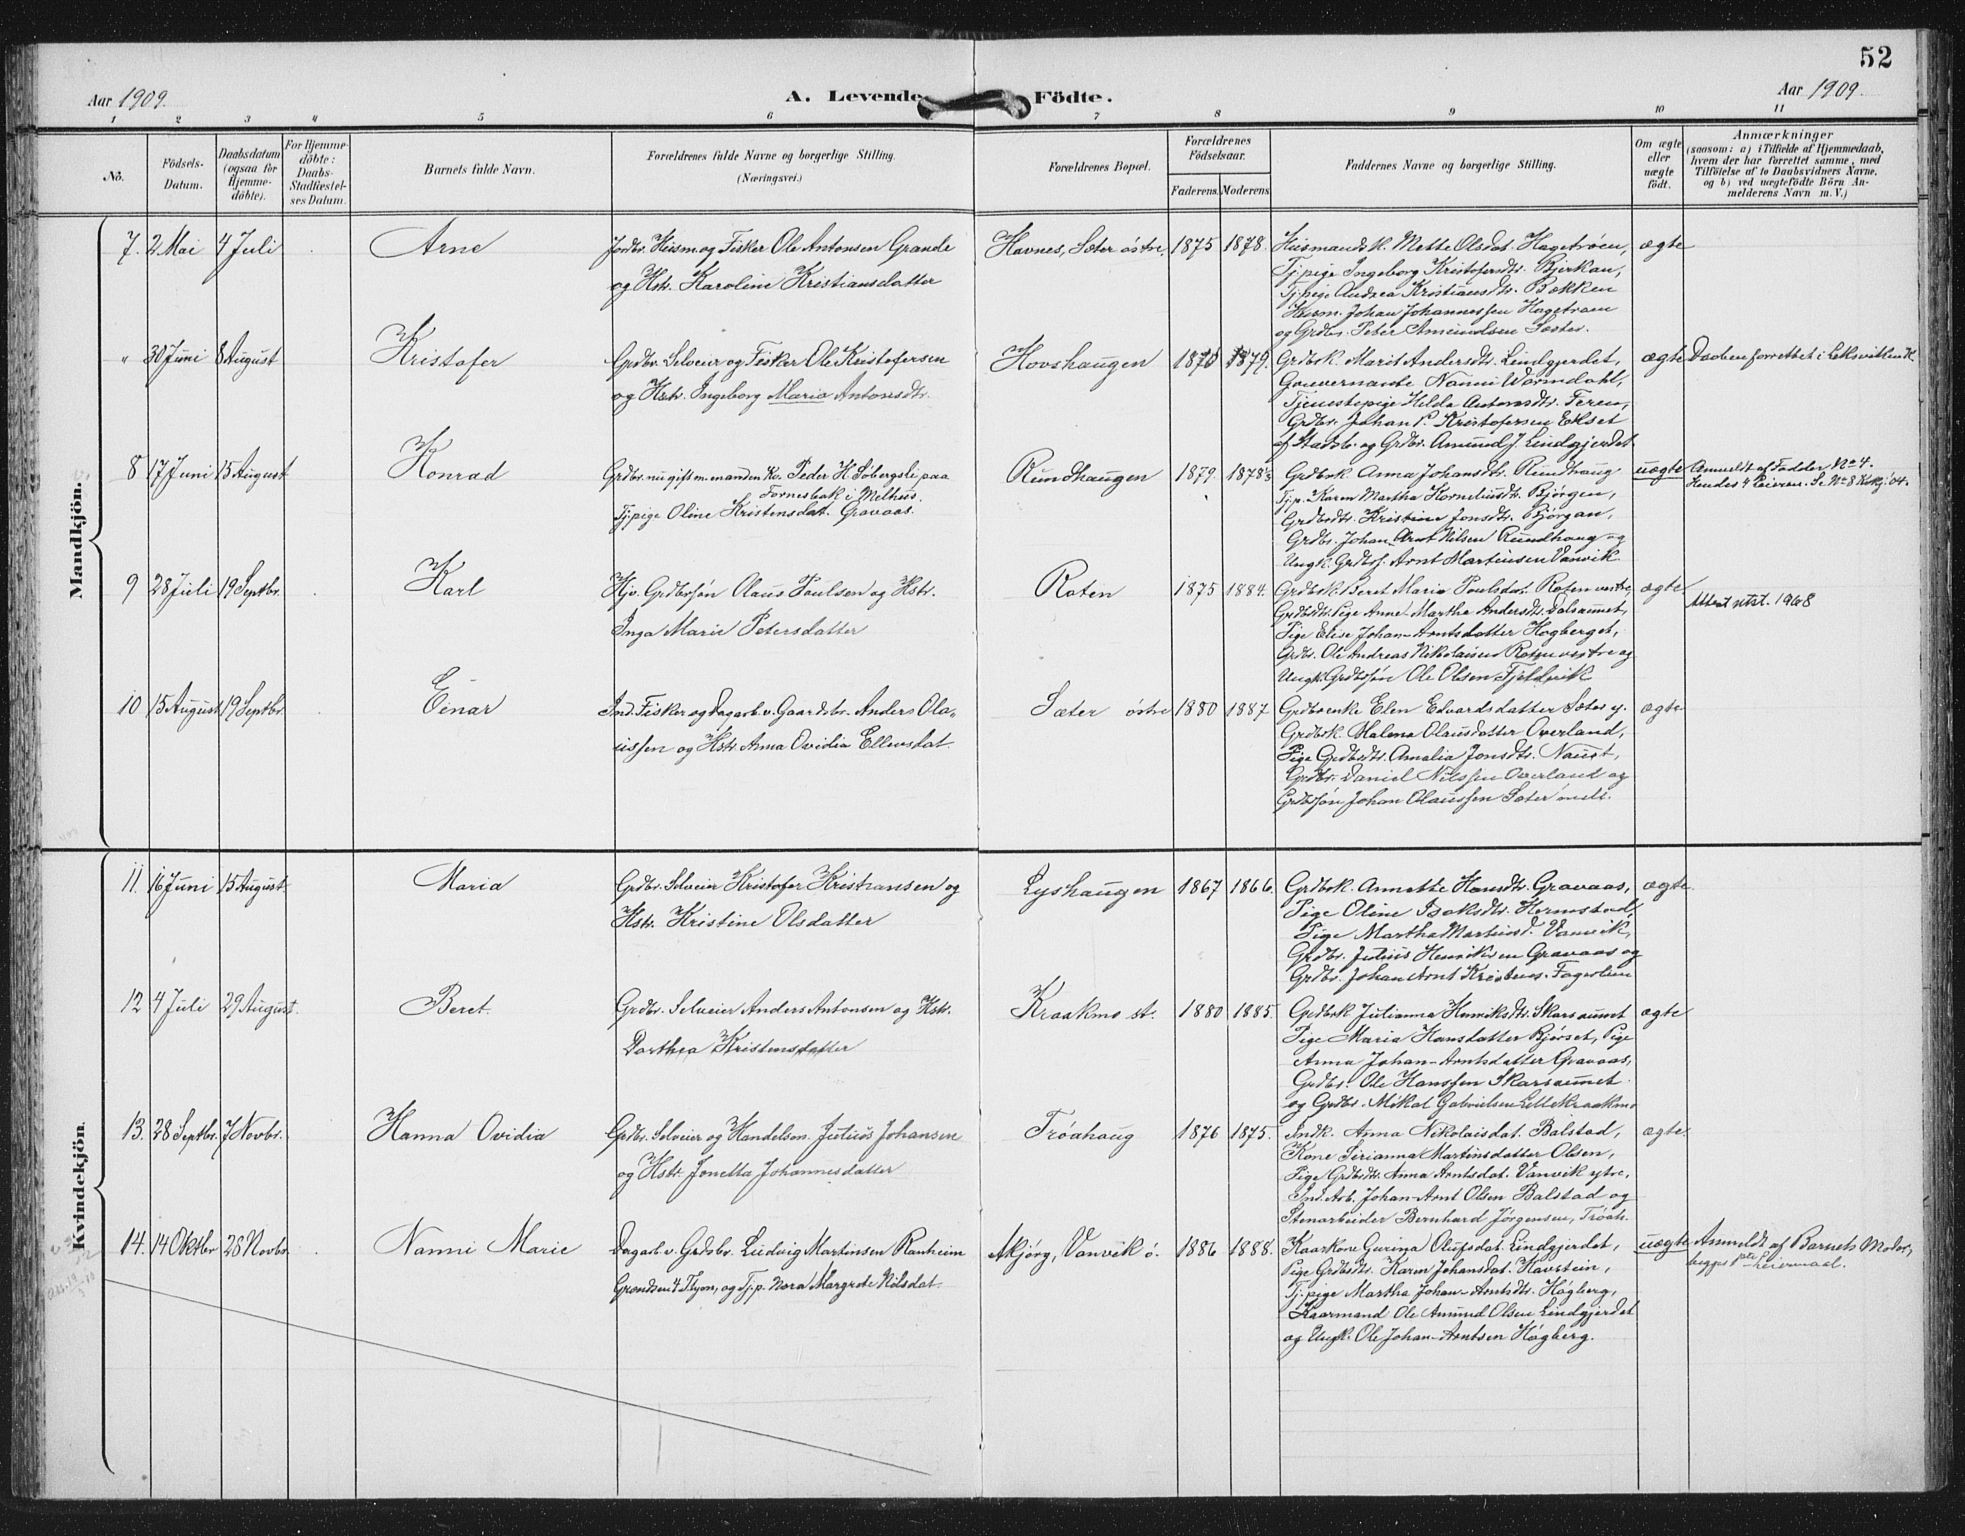 52
Aar 1909.
A. Levende Födte.
Aar 1909.
1 2 3 4 5 6 7 8 9 10 11
Nô.
Födsels-Datum.
Daabsdatum (ogsaa for Hjemme-döbte).
For Hjemme-döbte: Daabs-Stadfæstel-ses Datum.
Barnets fulde Navn.
Forældrenes fulde Navne og borgerlige Stilling.
(Næringsvei.)
Forældrenes Bopæl.
Forældrenes Födselsaar.
Faderens. Moderens
Faddernes Navne og borgerlige Stilling.
Om ægte eller uægte födt.
Anmærkninger
(saasom: a) i Tilfælde af Hjemmedaab,
hvem der har forrettet samme, med
Tilföielse af to Daabsvidners Navne,
og b) ved uægtefödte Börn An-
melderens Navn m. V.)
Mandkjön.
7. 2 Mai 4 Juli Arne
Jordbr. Husm og Fisker Ole Antonsen Grande
og Hstr. Karoline Kristiansdatter
Havnes, Sæter östre. 1875 1878.
Husmandsk. Mette Olsdat. Hagetröen,
Tjpige Ingeborg Kristofersdtr. Bjerkan,
Tj.pige Andrea Kristiansdtr. Bækken
Husm. Johan Johannessen Hagetröen
og Grdbr. Peter Amundsen Sæter.
ægte
" 30 Juni 8 August Kristofer
Grdbr. Selveier og Fisker Ole Kristofersen
og Hstr. Ingeborg Maria Antonsdtr.
Hovshaugen 1879.
Grdbrk. Marit Andersdtr. Lindgjerdet,
Gouvernante Nanni Wormdahl,
Tjenestepige Hilda Antonsdtr. Feren,
Grdbr. Johan P. Kristofersen Ekset
af Stadsb. og Grdbr. Amund J. Lindgjerdet
ægte Daaben forrettet i Leksviken K.
8 17 Juni 15 August Konrad
Grdbr. nu gift m. manden Ko. Peder H. Solbergsli paa
Fornesbak i Melhus.
Tjpige Oline Kristensdat. Gravaas.
Rundhaugen 1879.
Grdbrk. Anna Johansdtr. Rundhaug
Tj.p. Karen Martha Korneliusdtr. Björgen,
Grdbrdtr. Kristine Jonsdtr. Björgan,
Grdbr. Johan-Arnt Nilsen Rundhaug og
Ungk. Grdbrsj. Arnt Martinsen Vanvik
uægte Anmeldt af Fadder No 4.
9 28 Juli 19 Septbr. Karl
Hjv. Grdbrsøn Olaus Paulsen og Hstr.
Inga Marie Petersdatter
Roten 1875 1884.
Grdbrk. Beret Marie Poulsdat. Roten vestre,
Grdbrdtr. Pige Anne-Martha Andersdtr. Dalsaunet,
Pige Elise Johan-Arntsdatter Hogberget,
Grdbr. Ole Andreas Nikolaisen Roten vestre og
Ungk. Grdbrsøn Ole Olsen Fjeldevik
ægte. Attest utst. 1968
10 15 August 19 Septbr. Einar
Ind. Fisker og Dagarb. v. Gaardsbr. Anders Ola-
ussen og Hstr. Anna Ovidia Ellevsdat.
Sæter östre 1880 1887
Grdbrenke Elen Edvardsdatter Sæter y.
Grdbrk. Malena Olausdatter Overland,
Pige Grdbrdtr. Amalia Jonsdtr. Naust,
Grdbr. Daniel Nilssen Overland og
Grdbrsøn Johan Olaussen Sæter mell.
ægte
Kvindekjön.
11. 16 Juni 15 August Maria
Grdbr. Selveier Kristofer Kristiansen og
Hstr. Kristine Olsdatter
Lyshaugen 1867 1866.
Grdbrk. Annette Hansdtr. Gravaas,
Pige Oline Isaksdtr. Hermstad,
Pige Martha Martinsd. Vanvik,
Grdbr. Julius Henriksen Gravaas og
Grdbr. Johan Arnt Kristens. Fagerlien
ægte.
12 4 Juli 29 August. Beret.
Grdbr. Selveier Anders Antonsen og Hstr.
Dorthea Kristensdatter
Kraakmo st. 1880 1885.
Grdbrk Julianna Henriksdtr. Skarsaunet
Pige Maria Hansdatter Björset, Pige
Anna Johan-Arntsdatter Gravaas,
Grdbr. Ole Hanssen Skarsaunet
og Grdbr. Mikal Gabrielsen Lillekraakmo
ægte
13. 28 Septbr. 7 Novbr. Hanna Ovidia
Grdbr. Selveier og Handelsm. Julius Johansen
og Hstr. Jonetta Johannesdatter
Tröahaug 1876 1875.
Indk. Anna Nikolaisdat. Balstad,
Kone Serianna Martinsdatter Olsen,
Pige Grdbrdtr. Anna Arntsdat. Vanvik ytre,
Ind. Arb. Johan-Arnt Olsen Balstad og
Stenarbeider Bernhard Jörgensen, Tröah.
ægte.
14. 14 Oktbr 28 Novbr. Nanni Marie
Dagarb. v. Grdsbr. Ludvig Martinsen Ranheim
og Tj.p. Nora Margrete Nilsdat.
Vanvik ö. 1886 1888.
Kaarkone Gurina Olufsdat. Lindgjerdet,
Pige Grdbrdtr. Karen Johansdat. Havstein,
Tj.pige Martha Johan-Arntsdtr. Högberg,
Kaarmand Ole Amund Olsen Lindgjerdet
og Ungk. Ole Johan-Arntsen Högberg.
uægte Anmeldt af Barnets Moder,
begges 1ste Leiermaal.